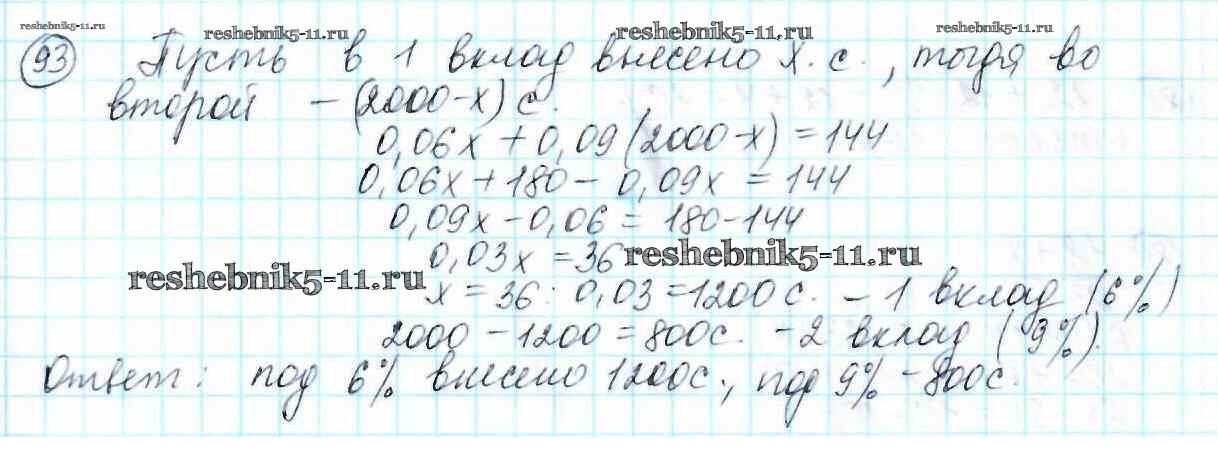 reshebnik5-11.ru reshebnik5-11.ru reshebnik5-11.ru
93 Пусть в 1 вклад внесено x. с., тогда во
второй – (2000-x) с.
0,06x + 0,09(2000-x) = 144
0,06x + 180 - 0,09x = 144
0,09x - 0,06 = 180-144
0,03x = 36 reshebnik5-11.ru
reshebnik5-11.ru
x = 36 : 0,03 = 1200 с. – 1 вклад (6%)
2000 – 1200 = 800с. - 2 вклад (9%).
Ответ: под 6% внесено 1200с., под 9% - 800с.